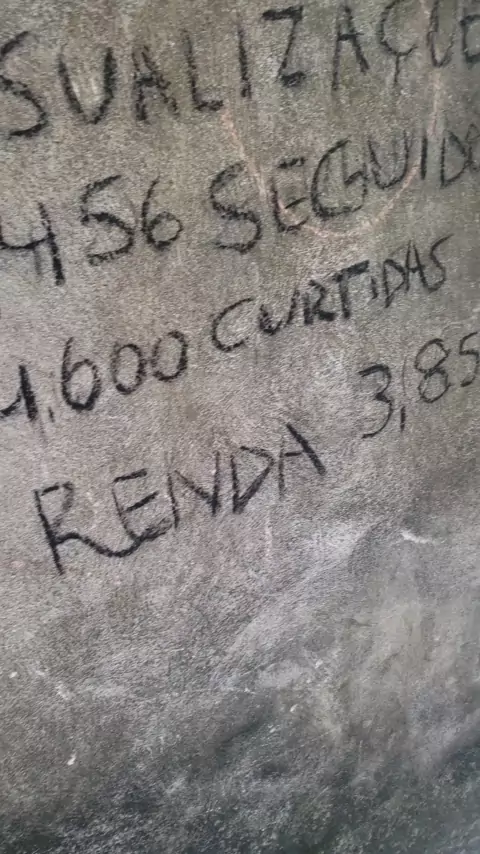 SUALIZAÇÕE
456 SEGUIDO
1.600 CURTIDAS
RENDA 3,85